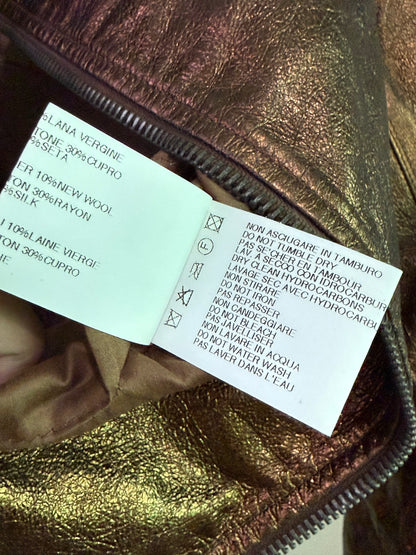 %LANA VERGINE
TONE 30%CUPRO
%SETA
ER 10%NEW WOOL
ON 30%RAYON
%SILK
I 10%LAINE VIERGE
ON 30%CUPRO
IE
F
NON ASCIUGARE IN TAMBURO
DO NOT TUMBLE DRY
PAS SECHER EN TAMBOUR
LAV. A SECCO CON IDROCARBUR
DRY CLEAN HYDROCARBONS
LAVAGE SEC AVEC HYDROCARBUR
NON STIRARE
DO NOT IRON
PAS REPASSER
NON CANDEGGIARE
DO NOT BLEACH
PAS JAVELLISER
NON LAVARE IN ACQUA
DO NOT WATER WASH
PAS LAVER DANS L'EAU